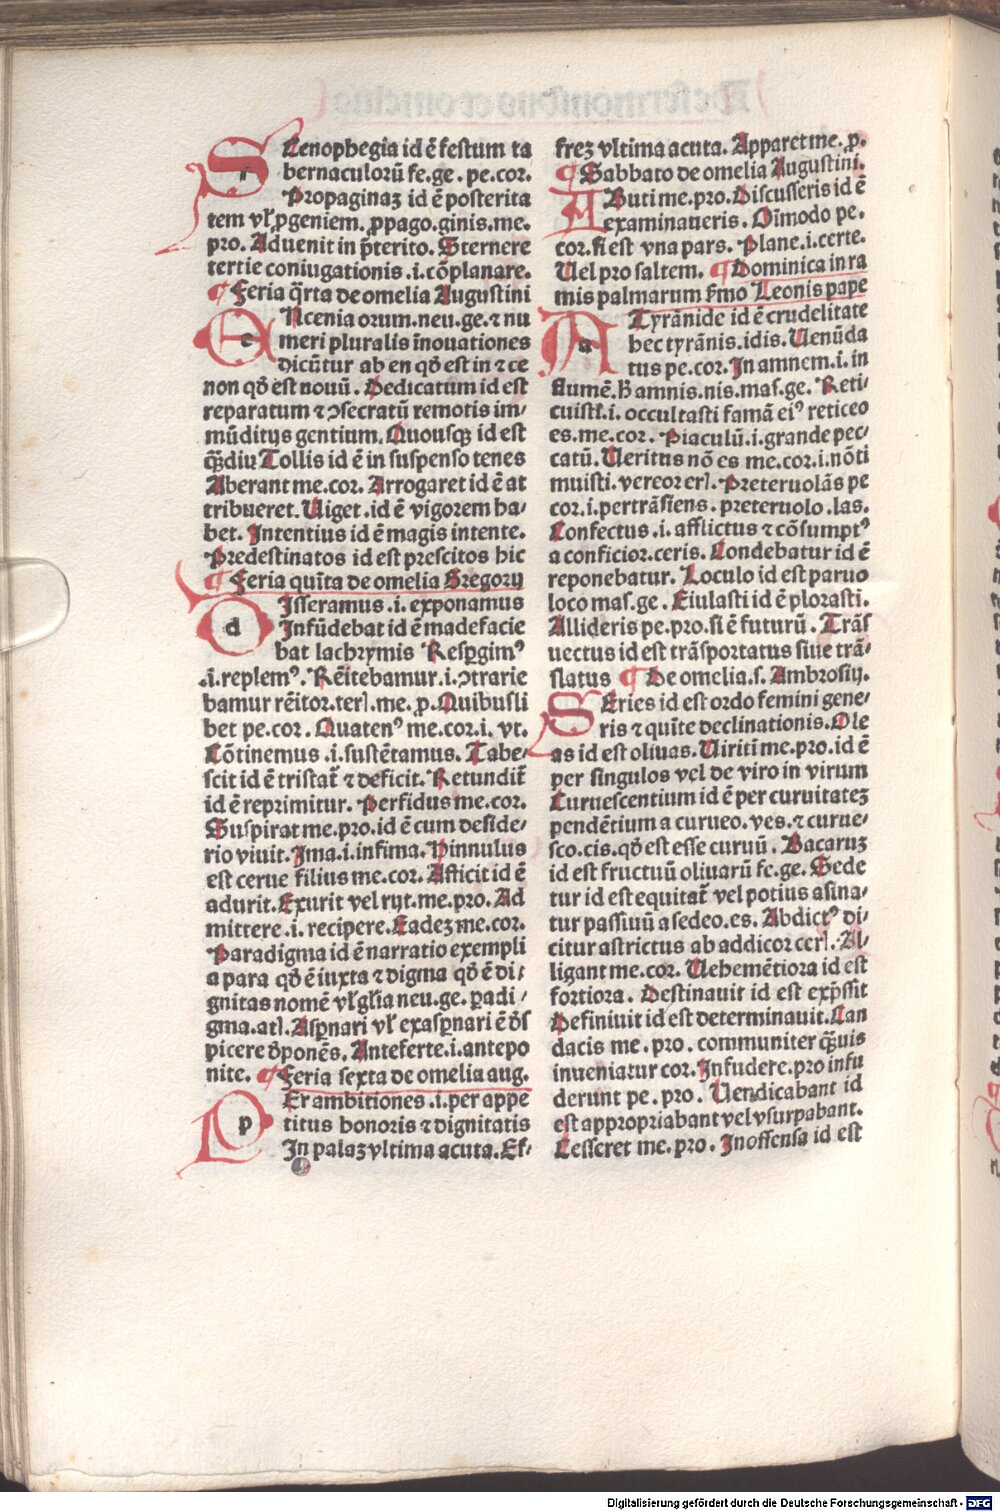 SCenophegia id ē festum ta
bernaculorū fe.ge. pe.cor.
Propaginaz id ē posterita
tem vl' ꝓgeniem. ꝓpago.ginis.me.
pro. Aduenit in p̄terito. Sternere
tertie coniugationis .i. cōplanare.
¶ Feria q̄rta de omelia Augustini
ENcenia orum.neu.ge.⁊ nu
meri pluralis īnouationes
dicūtur ab en qď est in ⁊ ce
non qď est nouū. Dedicatum id est
reparatum ⁊ ↄsecratū remotis im⸗
mūditijs gentium. Quousqꝫ id est
qꝫdiu Tollis id ē in suspenso tenes
Aberant me.cor. Arrogaret id ē at
tribueret. Uiget .id ē vigorem ha⸗
bet. Intentius id ē magis intente.
Predestinatos id est prescitos hic
¶ Feria quīta de omelia Gregorij
dIsseramus .i. exponamus
Infūdebat id ē madefacie
bat lachrymis Resꝑgimꝰ
.i.replemꝰ. Rēitebamur.i.ↄtrarie
bamur rēitor.terl.me.ꝓ. Quibusli
bet pe.cor. Quatenꝰ me.cor.i. vt.
Cōtinemus .i.sustētamus. Tabe⸗
scit id ē tristat̄ ⁊ deficit. Retundit̄
id ē reprimitur. Perfidus me.cor.
Suspirat me.pro.id ē cum deside⸗
rio viuit. Ima.i.infima. Hinnulus
est cerue filius me.cor. Afficit id ē
adurit. Exurit vel ryt.me.pro. Ad
mittere .i. recipere. Eadez me.cor.
Paradigma id ē narratio exempli
a para qď ē iuxta ⁊ digma qď ē di⸗
gnitas nomē vl' gl'ia neu.ge. ꝑadi⸗
gma.atl. Asꝑnari vl' exasꝑnari ē ďs
picere ďponēs. Anteferte.i.antepo
nite. ¶ Feria sexta de omelia aug.
pEr ambitiones .i.per appe
titus honoris ⁊ dignitatis
In palaz vltima acuta. Ef⸗
frez vltima acuta. Apparet me. ꝓ.
¶ Sabbato de omelia Augustini.
AButi me.pro. Discusseris id ē
examinaueris. Oīmodo pe.
cor.si est vna pars. Plane.i.certe.
Uel pro saltem. ¶ Dominica in ra
mis palmarum ẜmo Leonis pape
ATyrānide id ē crudelitate
hec tyrānis.idis. Uenūda
tus pe.cor. In amnem.i. in
flumē.h̄ amnis.nis.mas.ge. Reti⸗
cuisti.i. occultasti famā eiꝰ reticeo
es.me.cor. Piaculū.i.grande pec⸗
catū. Ueritus nō es me.cor.i.nōti
muisti. vereor erl. Preteruolās pe
cor.i.pertrāsiens. preteruolo .las.
Confectus .i. afflictus ⁊ cōsumptꝰ
a conficior.ceris. Condebatur id ē
reponebatur. Loculo id est paruo
loco mas.ge . Eiulasti id ē plorasti.
Allideris pe.pro.si ē futurū . Trās
uectus id est trāsportatus siue trā⸗
slatus ¶ De omelia.s. Ambrosij.
SEries id est ordo femini gene⸗
ris ⁊ quīte declinationis. Ole
as id est oliuas. Uiritim me.pro.id ē
per singulos vel de viro in virum
Curuescentium id ē per curuitatez
pendētium a curueo.ves.⁊ curue⸗
sco.cis.qď est esse curuū . Bacaruz
id est fructuū oliuarū fe.ge. Sede
tur id est equitat̄ vel potius asina⸗
tur passiuū a sedeo.es. Abdictꝰ di⸗
citur astrictus ab addicor cerl. Al⸗
ligant me.cor. Uehemētiora id est
fortiora. Destinauit id est exp̄ssit
Definiuit id est determinauit. Can
dacis me. pro. communiter qꝫuis
inueniatur cor. Infudere.pro infu
derunt pe. pro. Uendicabant id
est appropriabant vel vsurpabant.
Cesseret me.pro. Inoffensa id est
Digitalisierung gefördert durch die Deutsche Forschungsgemeinschaft - DFG